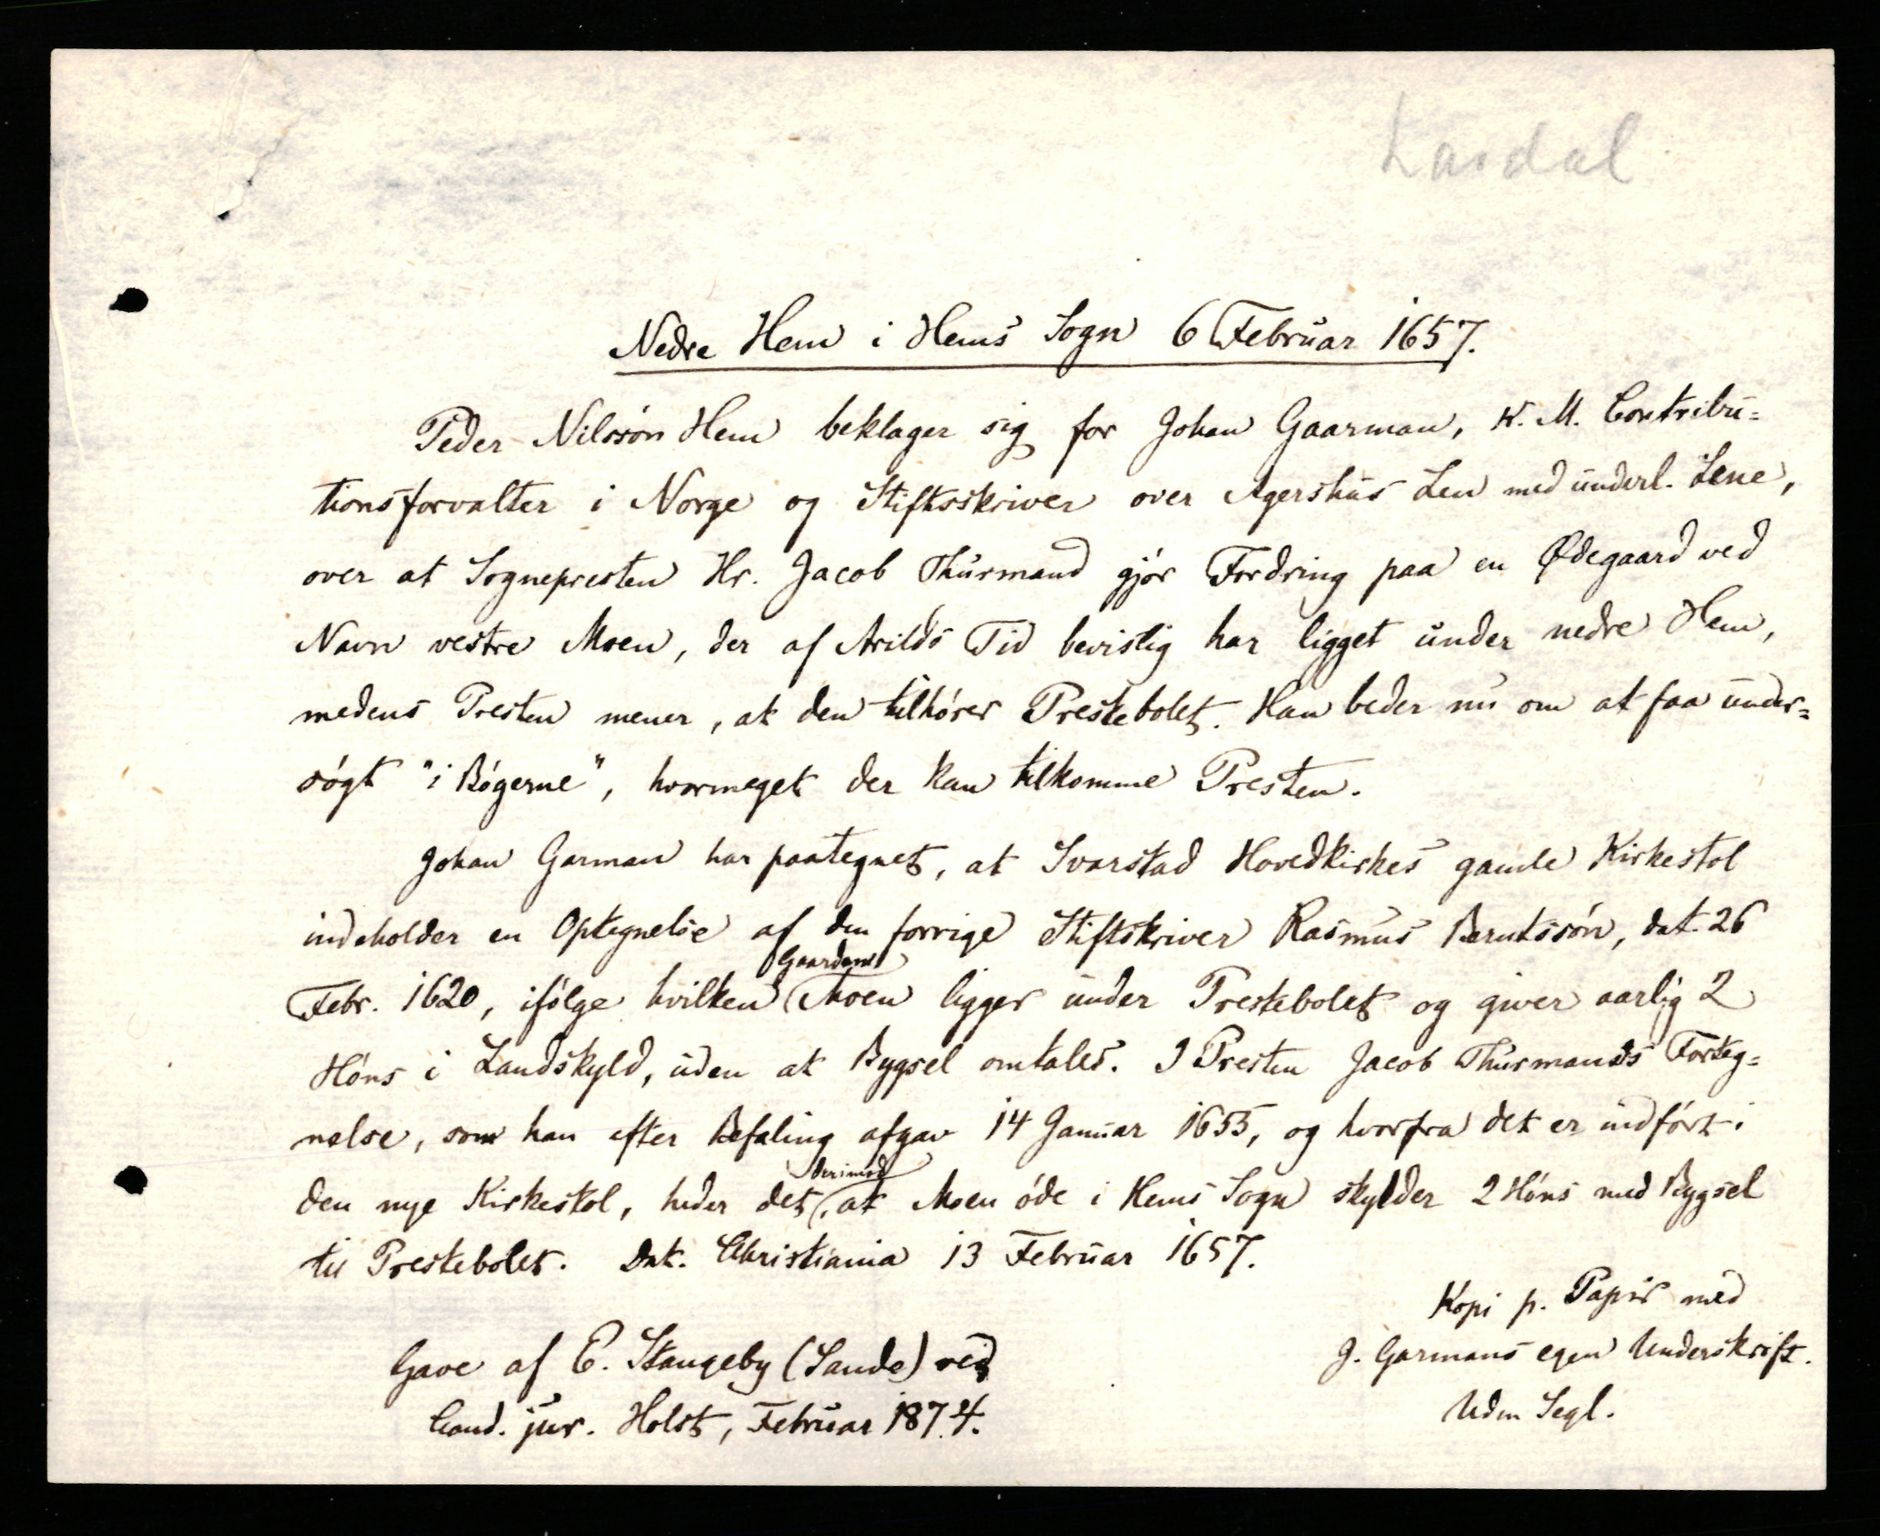 Lardal
Nedre Hem i Hems Sogn 6 Februar 1657.
Peder Nilssön Hem beklager sig for Johan Gaarman, K. M. Contribu=
tionsforvalter i Norge og Stiftsskriver over Agershus Len med underl. Lene,
over at Sognepresten Hr. Jacob Thurmand gjör Fordring paa en Ødegaard ved
Navn vestre Moen, der af Arilds Tid bevislig har ligget under nedre Hem,
medens Presten mener, at den tilhörer Prestebolet. Han beder nu om at faa under=
sögt "i Bögerne", hvormeget der kan tilkomme Presten.
Johan Garman har paategnet, at Svarstad Hovedkirkes gamle Kirkestol
indeholder en Optegnelse af den forrige Stiftskriver Rasmus Berntssön, dat. 26
Febr. 1620, ifölge hvilken Gaarden Moen ligger under Prestebolet og giver aarlig 2
Höns i Landskyld, uden at Bygsel omtales. I Presten Jacob Thurmands Forteg=
nelse, som han efter Befaling afgav 14 Januar 1655, og hvorfra det er indfört i
den nye Kirkestol, heder det derimod, at Moen öde i Hems Sogn skylder 2 Höns med Bygsel
til Prestebolet. Dat. Christiania 13 Februar 1657.
Kopi p. Papir med
J. Garmans egen Underskrift.
Uden Segl.
Gave af E. Stangeby (Sande) ved
Cand. jur. Holst, Februar 1874.